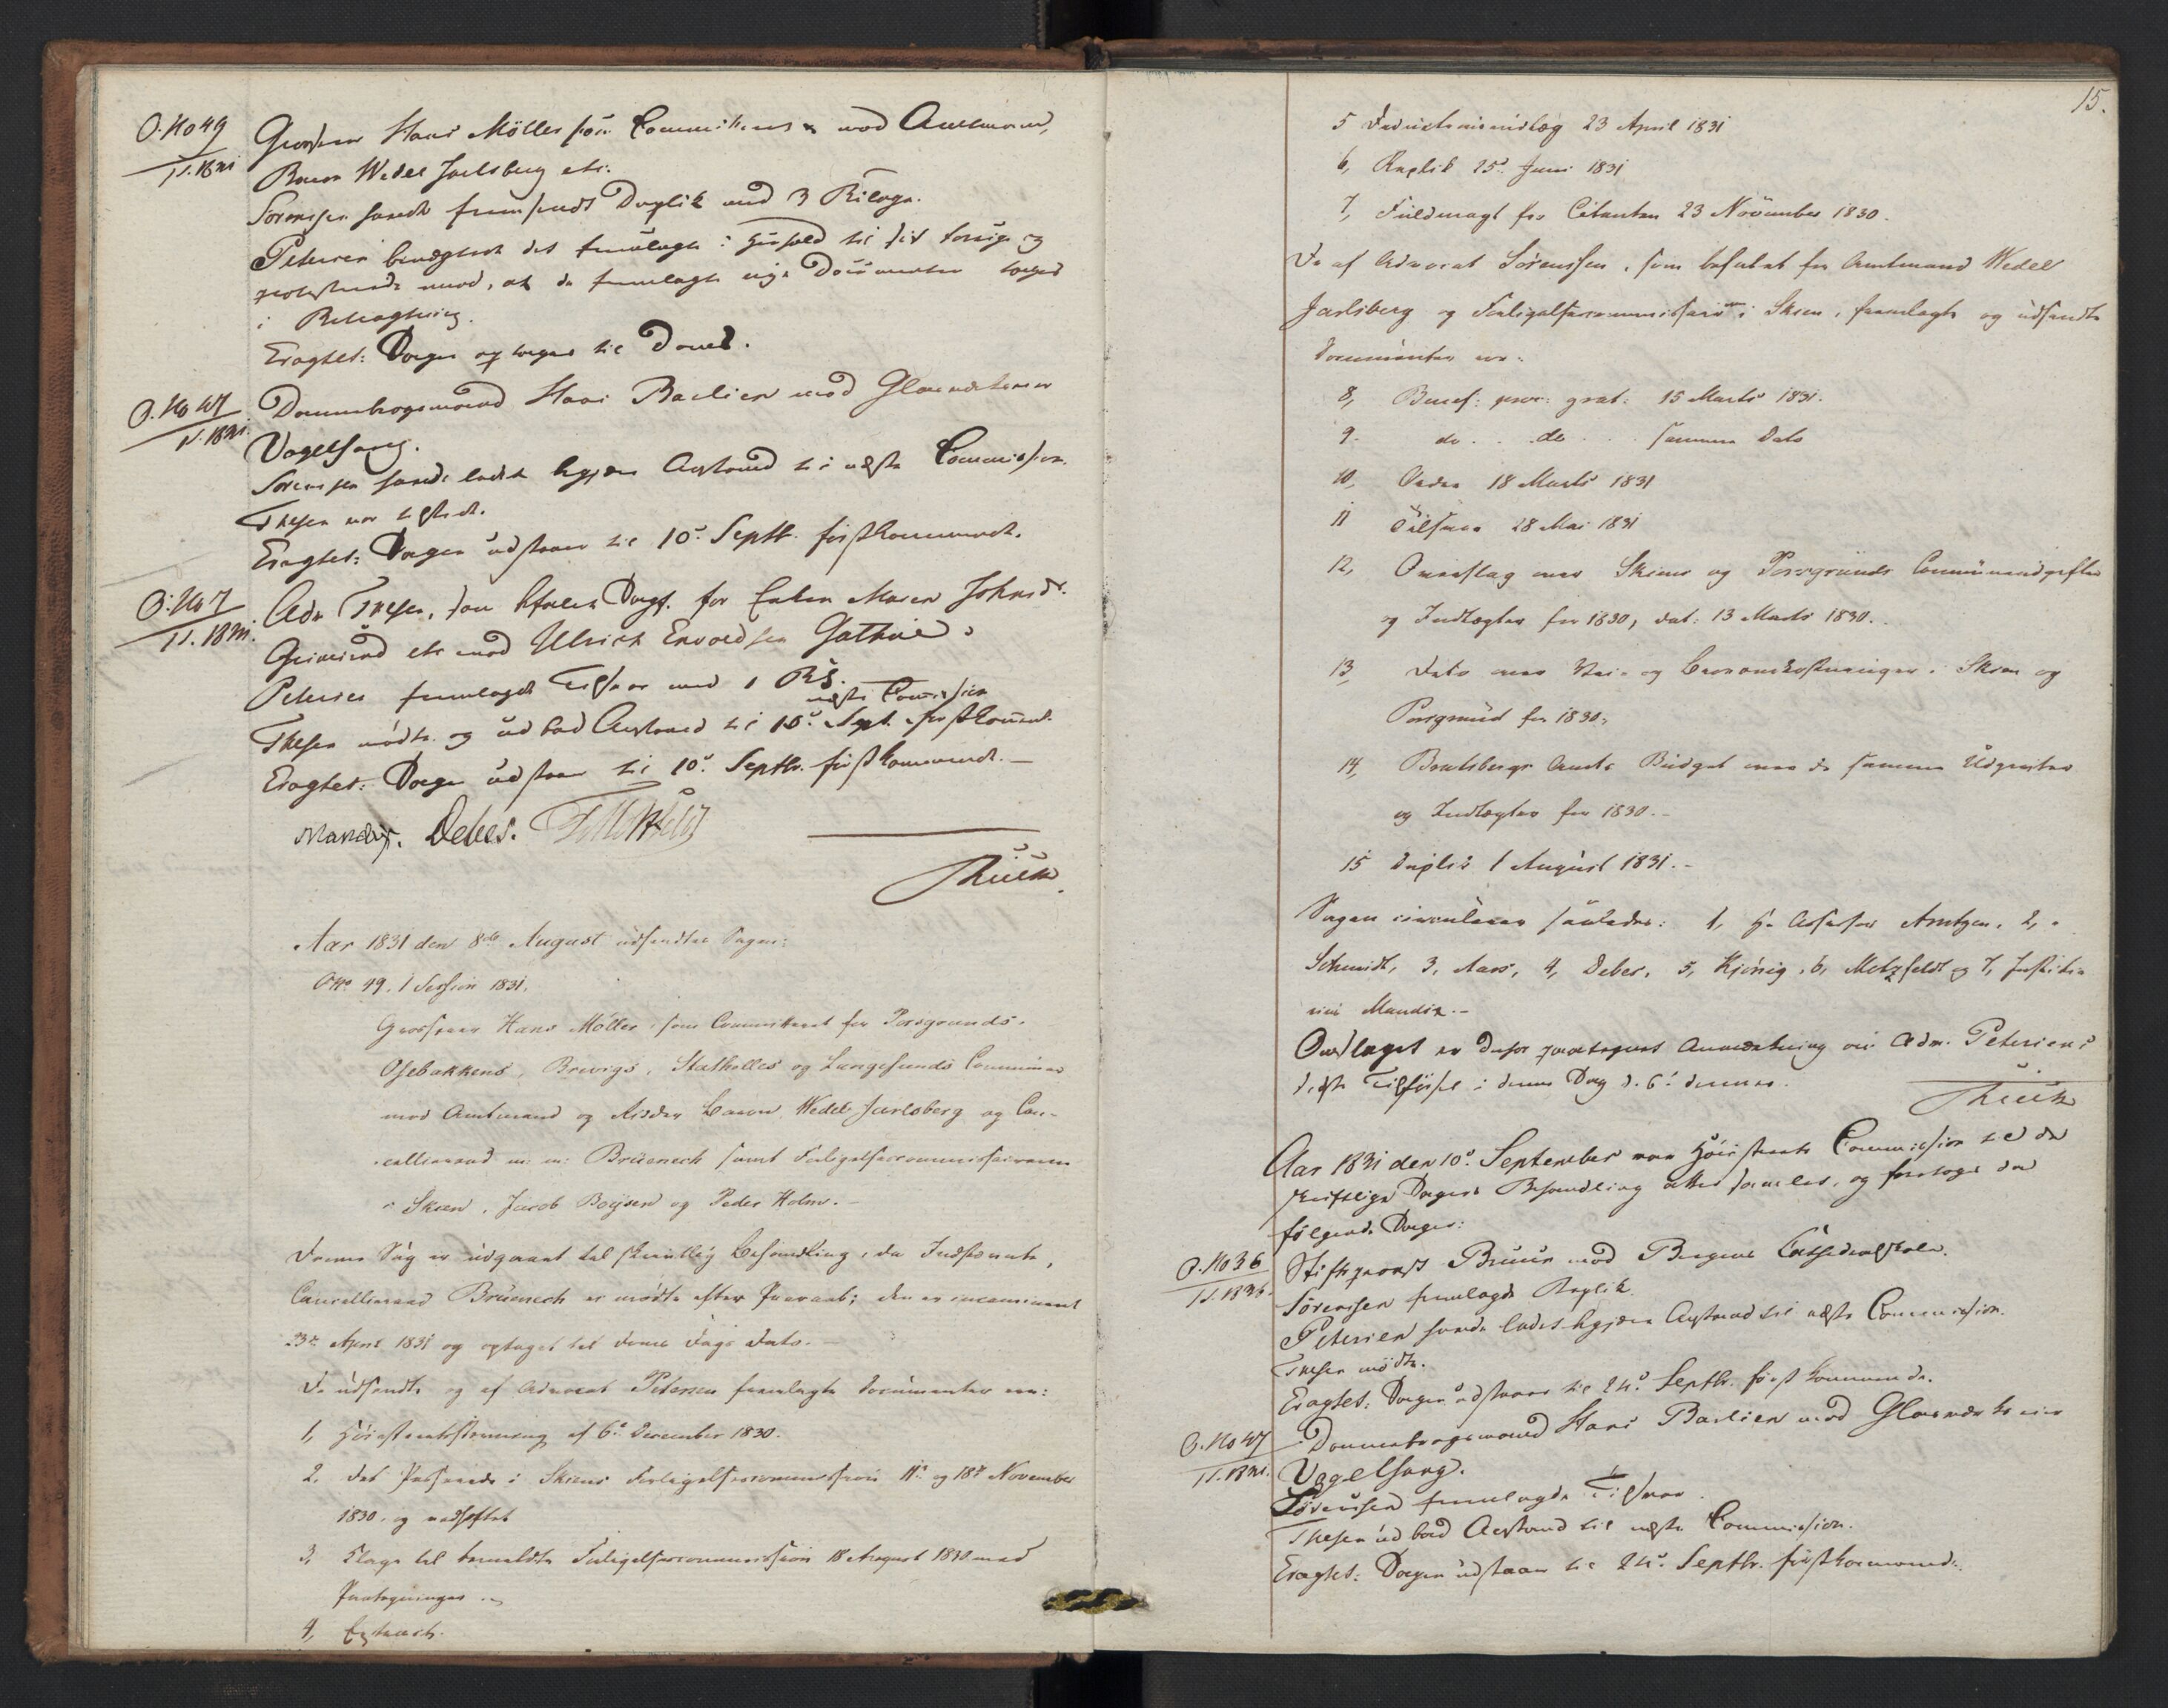 O. No 49
1 S. 1831
Grosserer Hans Möller som Committeret mod Amtmand,
Baron Wedel Jarlsberg etc.
Sörenssen havde fremsendt Duplik med 3 Bilage.
Petersen benægtede det fremlagte i Henhold til sit forrige og
protesterede imod, at de fremlagte nye Documenter toges
i Betragtning.
Eragtet: Sagen optages til Doms.
O. No 47
1 S. 1831.
Dannebrogsmand Hans Barlien mod Glasværkseier
Vogelsang.
Sörenssen havde ladet begjære Anstand til næste Commission.
Thesen var tilstede.
Eragtet: Sagen udstaaer til 10de Septbr. förstkommende.
O. No 7
1 S. 1831.
Adv. Thesen, som befalet Sagf. for Enken Maren Johnsdr.
etc mod Ulrich Envoldsen Gathue.
Petersen fremlagde Tilsvar med 1 Bil.
næste Commission
Thesen mödte og udbad Anstand til 10de Sept. förstkommende.
Eragtet: Sagen udstaaer til 10de Septbr. förstkommende.
Mandix. Debes. F Motzfeldt
Aar 1831 den 8de August udsendtes Sagen:
O No 49. 1 Session 1831.
Grosserer Hans Möller, som Committeret for Porsgrunds,
Osebakkens, Brevigs, Stathelles og Langesunds Communer
mod Amtmand og Ridder Baron Wedel Jarlsberg og Can-
celliraad m: m: Brüenech samt Forligelsescommissairerne
i Skien, Jacob Boysen og Peder Holm.
Denne Sag er udgaaet til skriftlig Behandling, da Indstevnte,
Cancelliraad Brüenech er mödte efter Paaraab; den er incamineret
23de April 1831 og optaget til Doms Dags Dato.
De udsendte og af Advocat Petersen fremlagte Documenter ere:
1, Höiesteretsstevning af 6te December 1830.
2, Det Passerede i Skiens Forligelsescommission 11te og 18de November
1830, og vedheftet
3, Klage til bemeldte Forligelsescommission 18 August 1830 med
Paategninger
4, Extract.
15.
5 Deductionsindlæg 23 April 1831
6, Replik 25de Juni 1831
7, Fuldmagt fra Citanten 23 November 1830.
De af Advocat Sörenssen, som befalet for Amtmand Wedel
Jarlsberg og Forligelsescommissairerne i Skien, fremlagte og udsendte
Documenter ere:
8, Benef: proc: grat: 15 Marts 1831.
9. do . . do . . . samme Dato
10, Ordre 18 Marts 1831
11 Tilsvar 28 Mai 1831
12, Overslag over Skiens og Porsgrunds Communeudgifter
og Indtægter for 1830, dat: 13 Marts 1830.
13, Dito over Vei- og Broomkostninger i Skien og
Porsgrund for 1830.
14, Bratsbergs Amts Budget over de samme Udgifter
og Indtægter for 1830.
15 Duplik 1 August 1831.
Sagen circulerer saaledes: 1, Hr Assessor Arntzen, 2,
Schmidt, 3, Aars, 4, Debes, 5, Kjönig, 6, Motzfeldt og 7, Justitia-
rius Mandix.
Omslaget er derfor paategnet Anmærkning om Adv. Petersens
sidste Tilförsel i denne Sag d. 6te dennes.
Aar 1831 den 10de September var Höiesterets Commission til de
skriftlige Sagers Behandling atter samlet, og foretoges da
fölgende Sager:
O. No 36
1 S. 1831.
Stiftsprovst Bruun mod Bergens Cathedralskole.
Sörenssen fremlagde Replik.
Petersen havde ladet begjære Anstand til næste Commission.
Thesen mödte.
Eragtet: Sagen udstaaer til 24de Septbr. förstkommende.
O. No 47
1 S. 1831.
Dannebrogsmand Hans Barlien mod Glasværkseier
Vogelsang.
Sörenssen fremlagde Tilsvar.
Thesen udbad Anstand til næste Commission.
Eragtet: Sagen udstaaer til 24de Septbr. förstkommende.